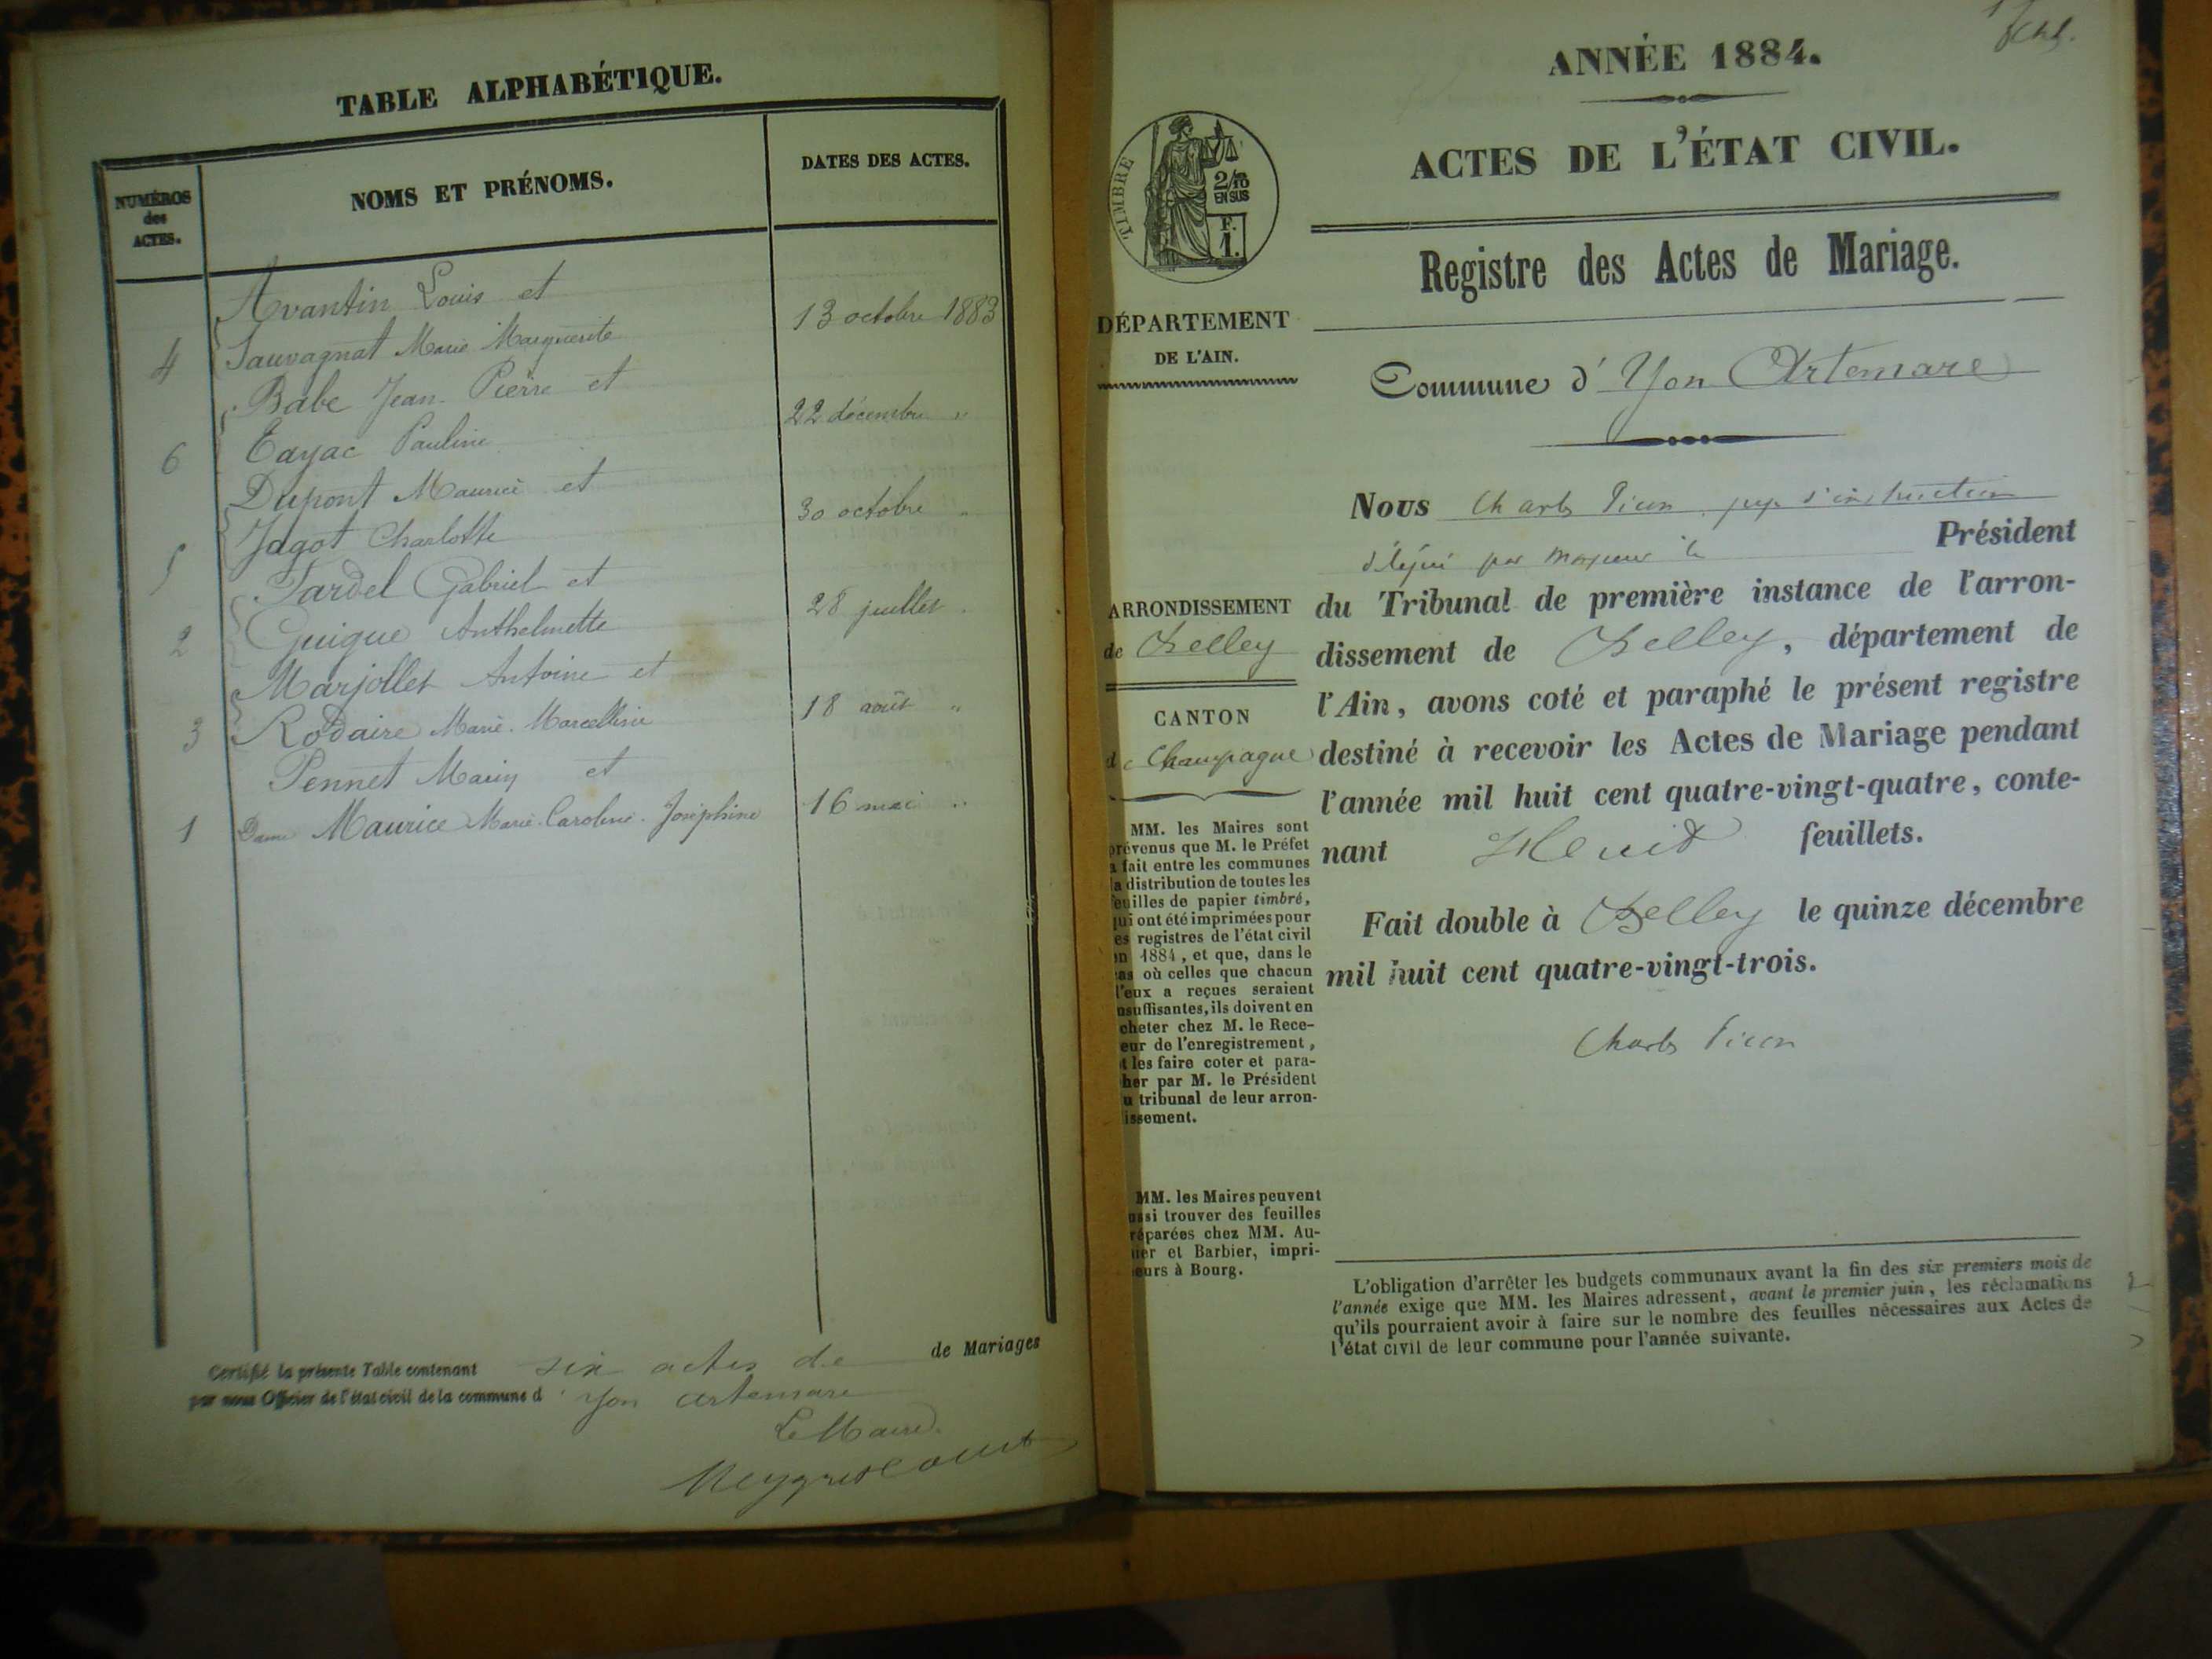 TABLE ALPHABÉTIQUE.
NUMÉROS des ACTES.
NOMS ET PRÉNOMS.
DATES DES ACTES.
Avantin Louis et
4 Sauvagnat Marie Marguerite 13 octobre 1883
Babe Jean-Pierre et
6 Cayac Pauline 22 décembre "
Dupont Maurice et
5 Jagot Charlotte 30 octobre "
Jardel Gabriel et
2 Guigue Anthelmette 28 juillet "
Marjollet Antoine et
3 Rodaire Marie-Marcelline 18 août "
Pennet Marin et
1 Dame Maurice Marie-Caroline-Joséphine 16 mai "
Certifié la présente Table contenant six actes de de Mariages
par nous Officier de l'état civil de la commune d'Yon Artemare
Le Maire
ANNÉE 1884.
ACTES DE L'ÉTAT CIVIL.
TIMBRE
2/10
EN SUS
F.
1.
Registre des Actes de Mariage.
DÉPARTEMENT
DE L'AIN.
Commune d'Yon Artemare
ARRONDISSEMENT
de Belley
CANTON
de Champagne
MM. les Maires sont
prévenus que M. le Préfet
a fait entre les communes
la distribution de toutes les
feuilles de papier timbré,
qui ont été imprimées pour
les registres de l'état civil
en 1884, et que, dans le
cas où celles que chacun
d'eux a reçues seraient
insuffisantes, ils doivent en
acheter chez M. le Rece-
veur de l'enregistrement,
et les faire coter et para-
pher par M. le Président
du tribunal de leur arron-
dissement.
MM. les Maires peuvent
aussi trouver des feuilles
préparées chez MM. Au-
thier et Barbier, impri-
meurs à Bourg.
Nous Charles Picon, juge d'instruction
délégué par Monsieur le Président
du Tribunal de première instance de l'arron-
dissement de Belley, département de
l'Ain, avons coté et paraphé le présent registre
destiné à recevoir les Actes de Mariage pendant
l'année mil huit cent quatre-vingt-quatre, conte-
nant Huit feuillets.
Fait double à Belley le quinze décembre
mil huit cent quatre-vingt-trois.
Charles Picon
L'obligation d'arrêter les budgets communaux avant la fin des six premiers mois de
l'année exige que MM. les Maires adressent, avant le premier juin, les réclamations
qu'ils pourraient avoir à faire sur le nombre des feuilles nécessaires aux Actes de
l'état civil de leur commune pour l'année suivante.